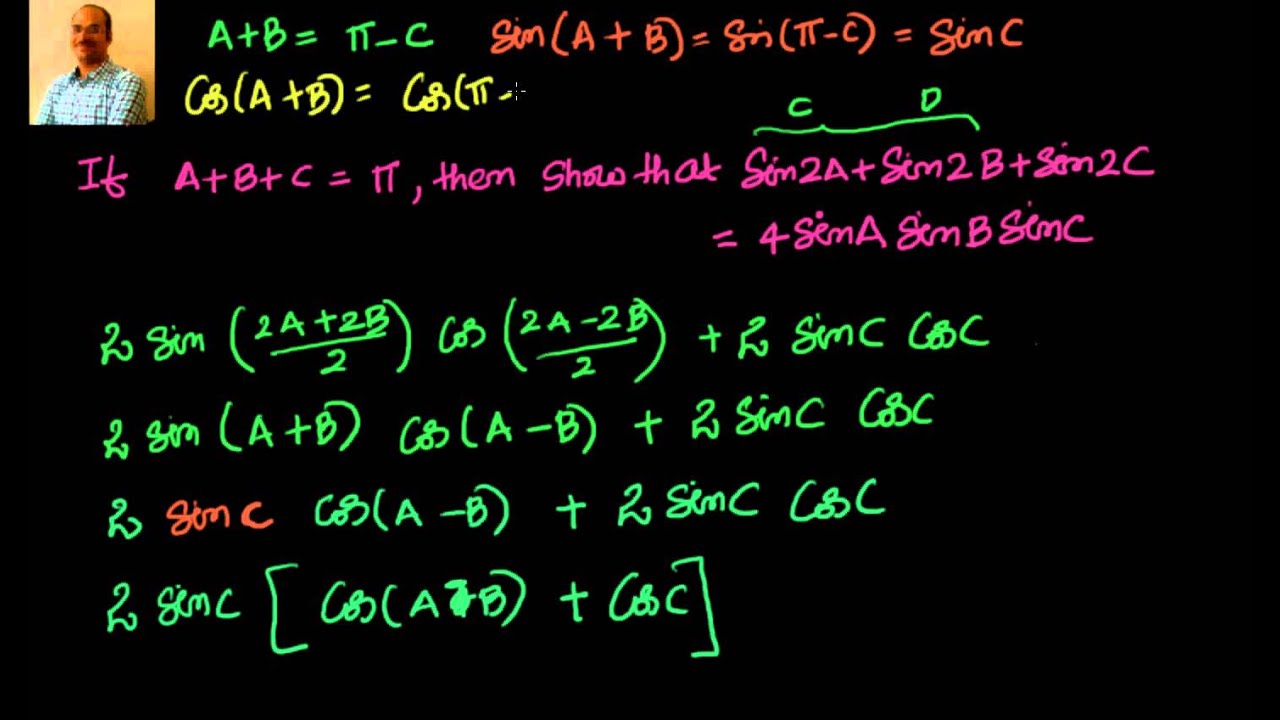 A+B = π-C   Sin(A+B) = Sin(π-C) = Sin C
Cos(A+B) = Cos(π -
C   D
If A+B+C = π, then show that Sin2A + Sin2B + Sin2C
= 4 SinA SinB SinC
2 Sin (2A+2B/2) Cos (2A-2B/2) + 2 SinC CosC
2 Sin (A+B) Cos (A-B) + 2 SinC CosC
2 Sin C Cos(A-B) + 2 SinC CosC
2 SinC [Cos(A-B) + CosC]